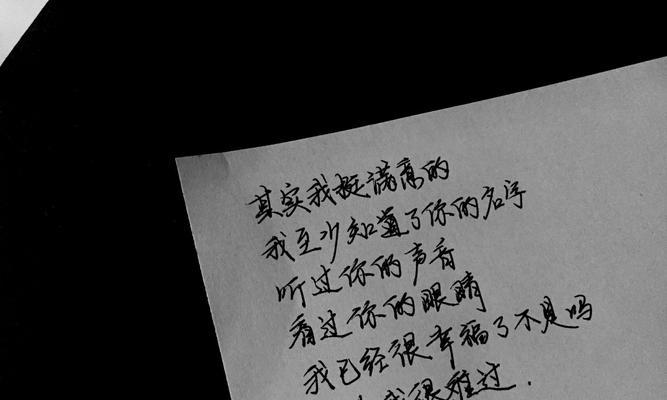 其实我挺满意的
我至少知道了你的名字
听过你的声音
看过你的眼睛
我已经很幸福了不是吗
我很难过.